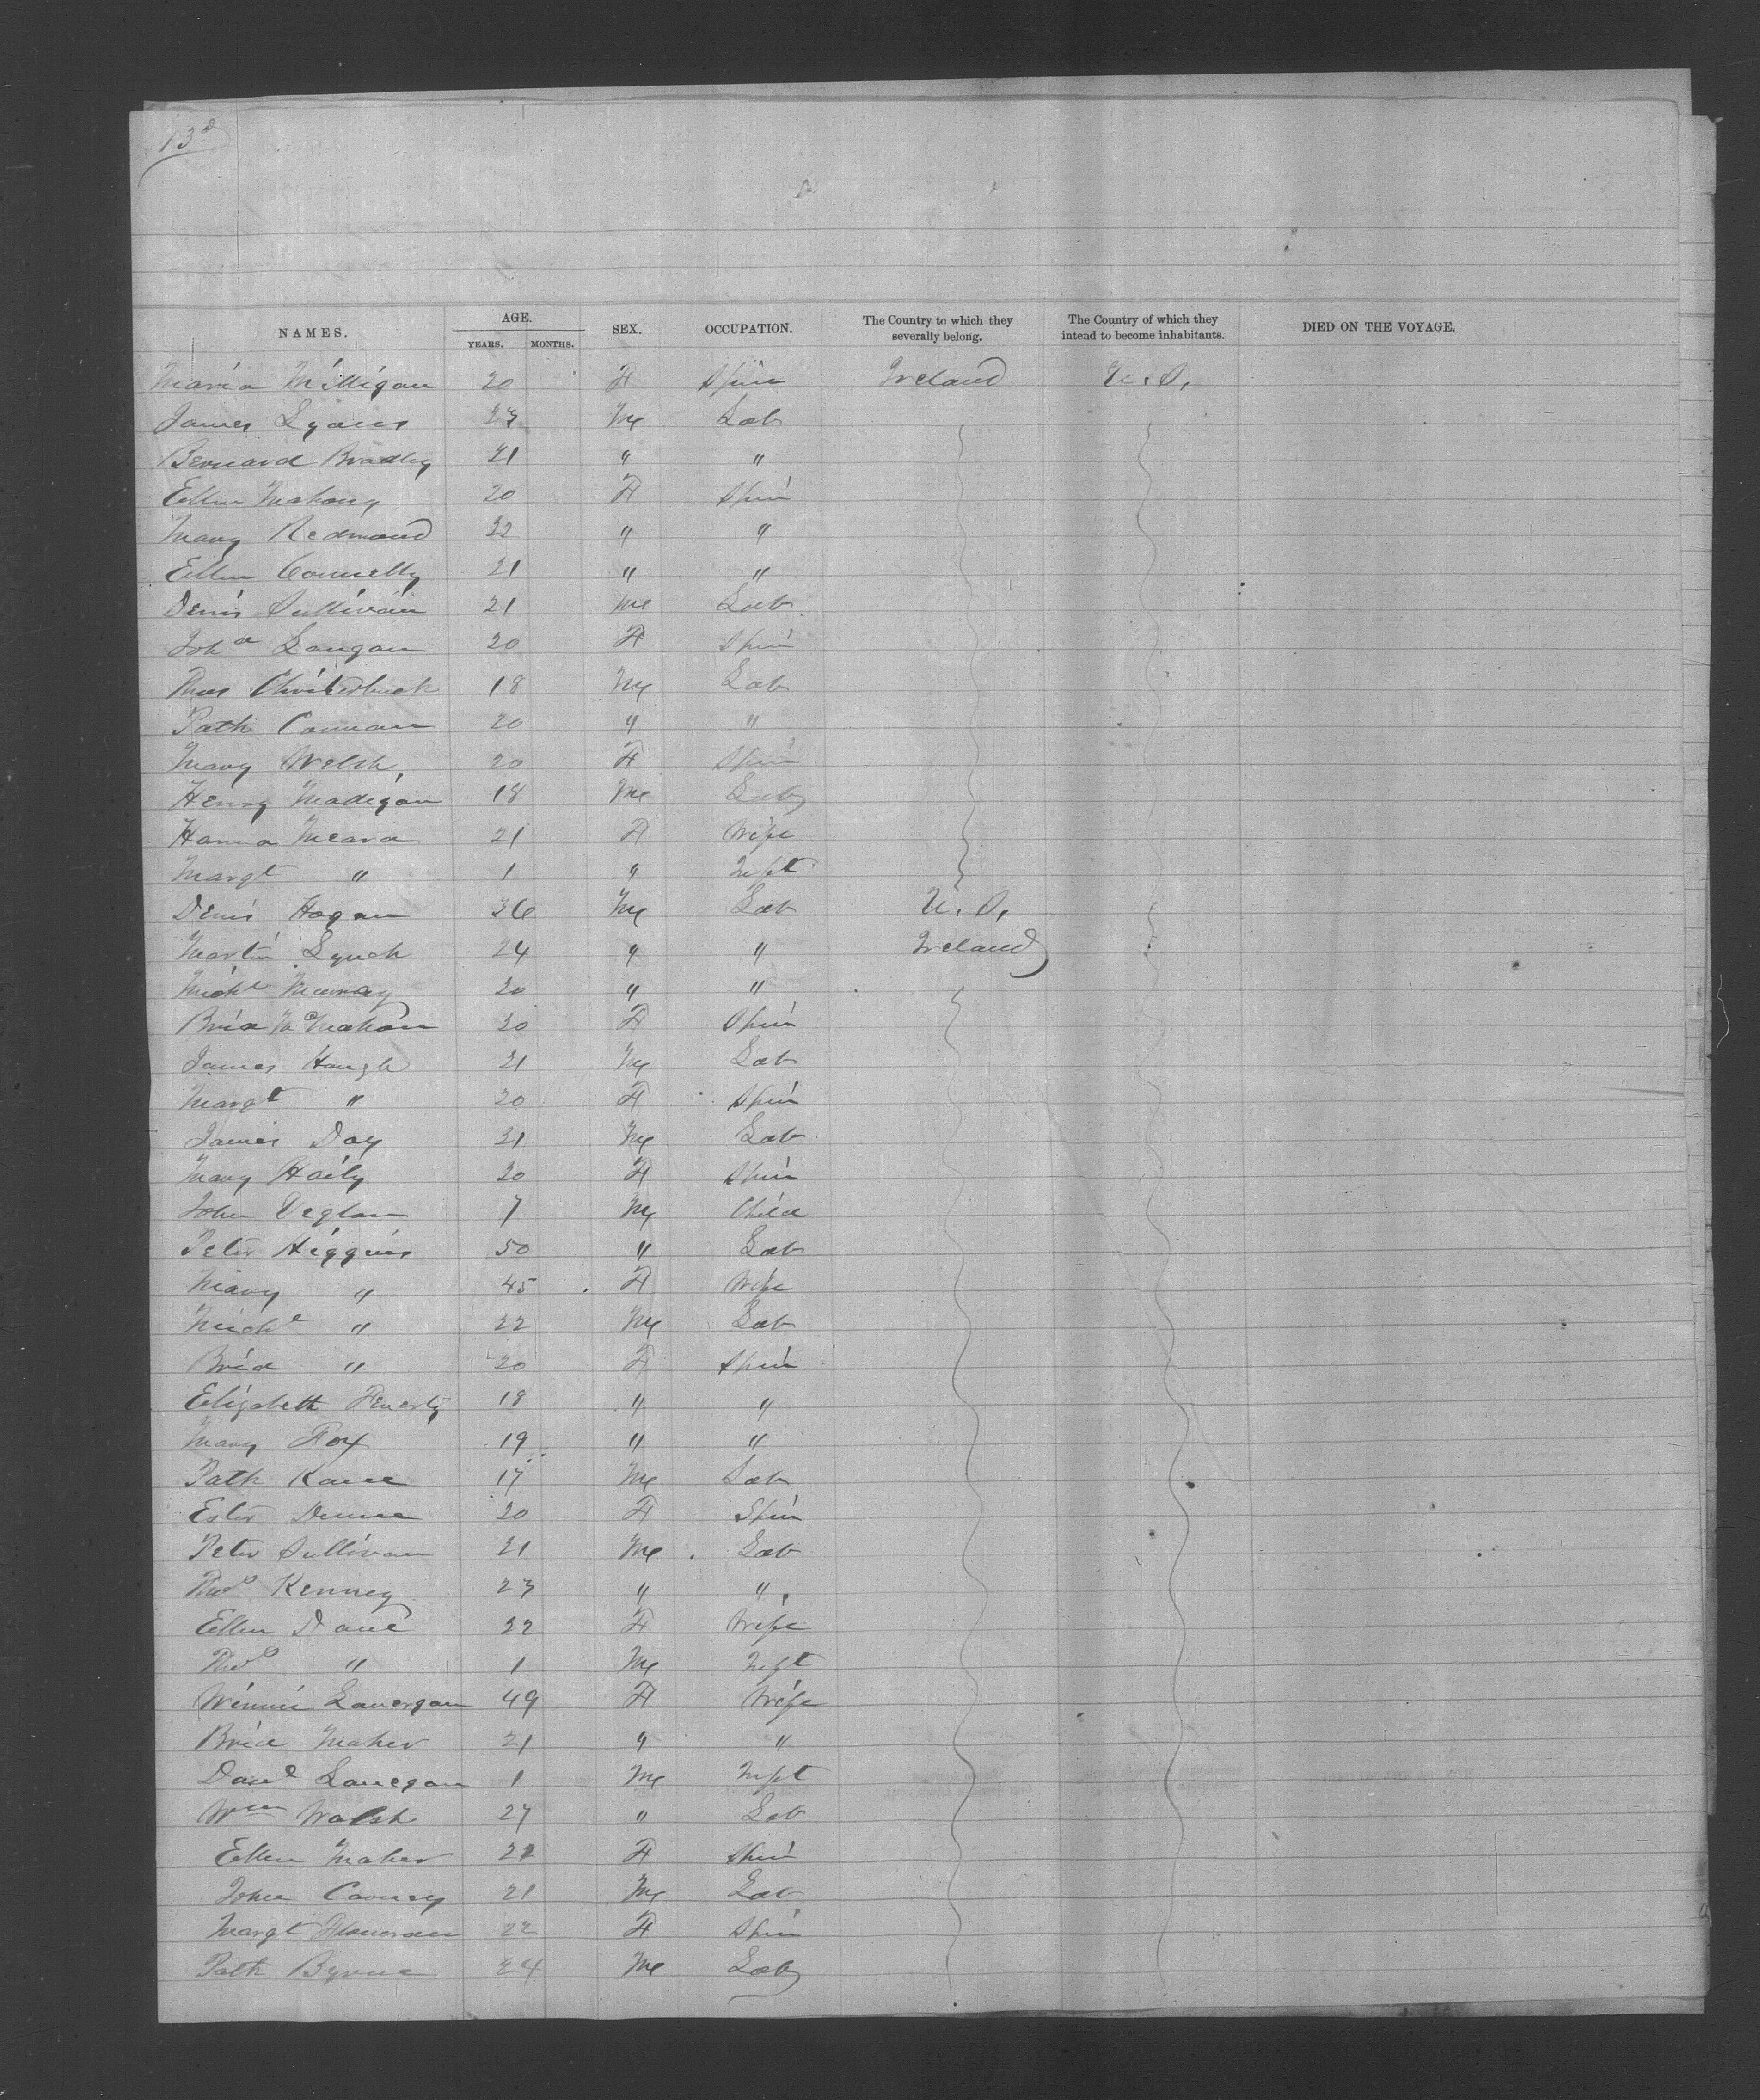 13
NAMES. AGE. YEARS. MONTHS. SEX. OCCUPATION. The Country to which they severally belong. The Country of which they intend to become inhabitants. DIED ON THE VOYAGE.
Maria Milligan 20 F Spin Ireland U.S.
James Lyons 23 M Lab
Bernard Bradley 21 " "
Ellen Mahony 20 F Spin
Mary Redmond 22 " "
Ellen Connelly 21 " "
Denis Sullivan 21 M Lab
Joha Langan 20 F Spin
Thos 18 M Lab
Patk Connan 20 " "
Mary Welsh 20 F Spin
Henry Madigan 18 M Lab
Hanna Meara 21 F Wife
Margt " 1 " Inft
Denis Hogan 36 M Lab U.S.
Martin Lynch 24 " " Ireland
Michl Murray 20 " "
Brid McMahon 20 F Spin
James Haugh 21 M Lab
Margt " 20 F Spin
James Day 21 M Lab
Mary Haily 20 F Spin
John 7 M Child
Peter Higgins 50 " Lab
Mary " 45 F Wife
Michl " 22 M Lab
Brid " 20 F Spin
Elizabeth 18 " "
Mary Fox 19 " "
Patk Kane 17 M Lab
Ester Dunne 20 F Spin
Peter Sullivan 21 M Lab
Thos Kenney 23 " "
Ellen Dane 22 F Wife
Thos " 1 M Inft
Winnie Lanergan 49 F Wife
Brid Maher 21 " "
Danl Lanegan 1 M Inft
Wm Walsh 27 " Lab
Ellen Maher 22 F Spin
John 21 M Lab
Margt 22 F Spin
Patk Byrne 24 M Lab